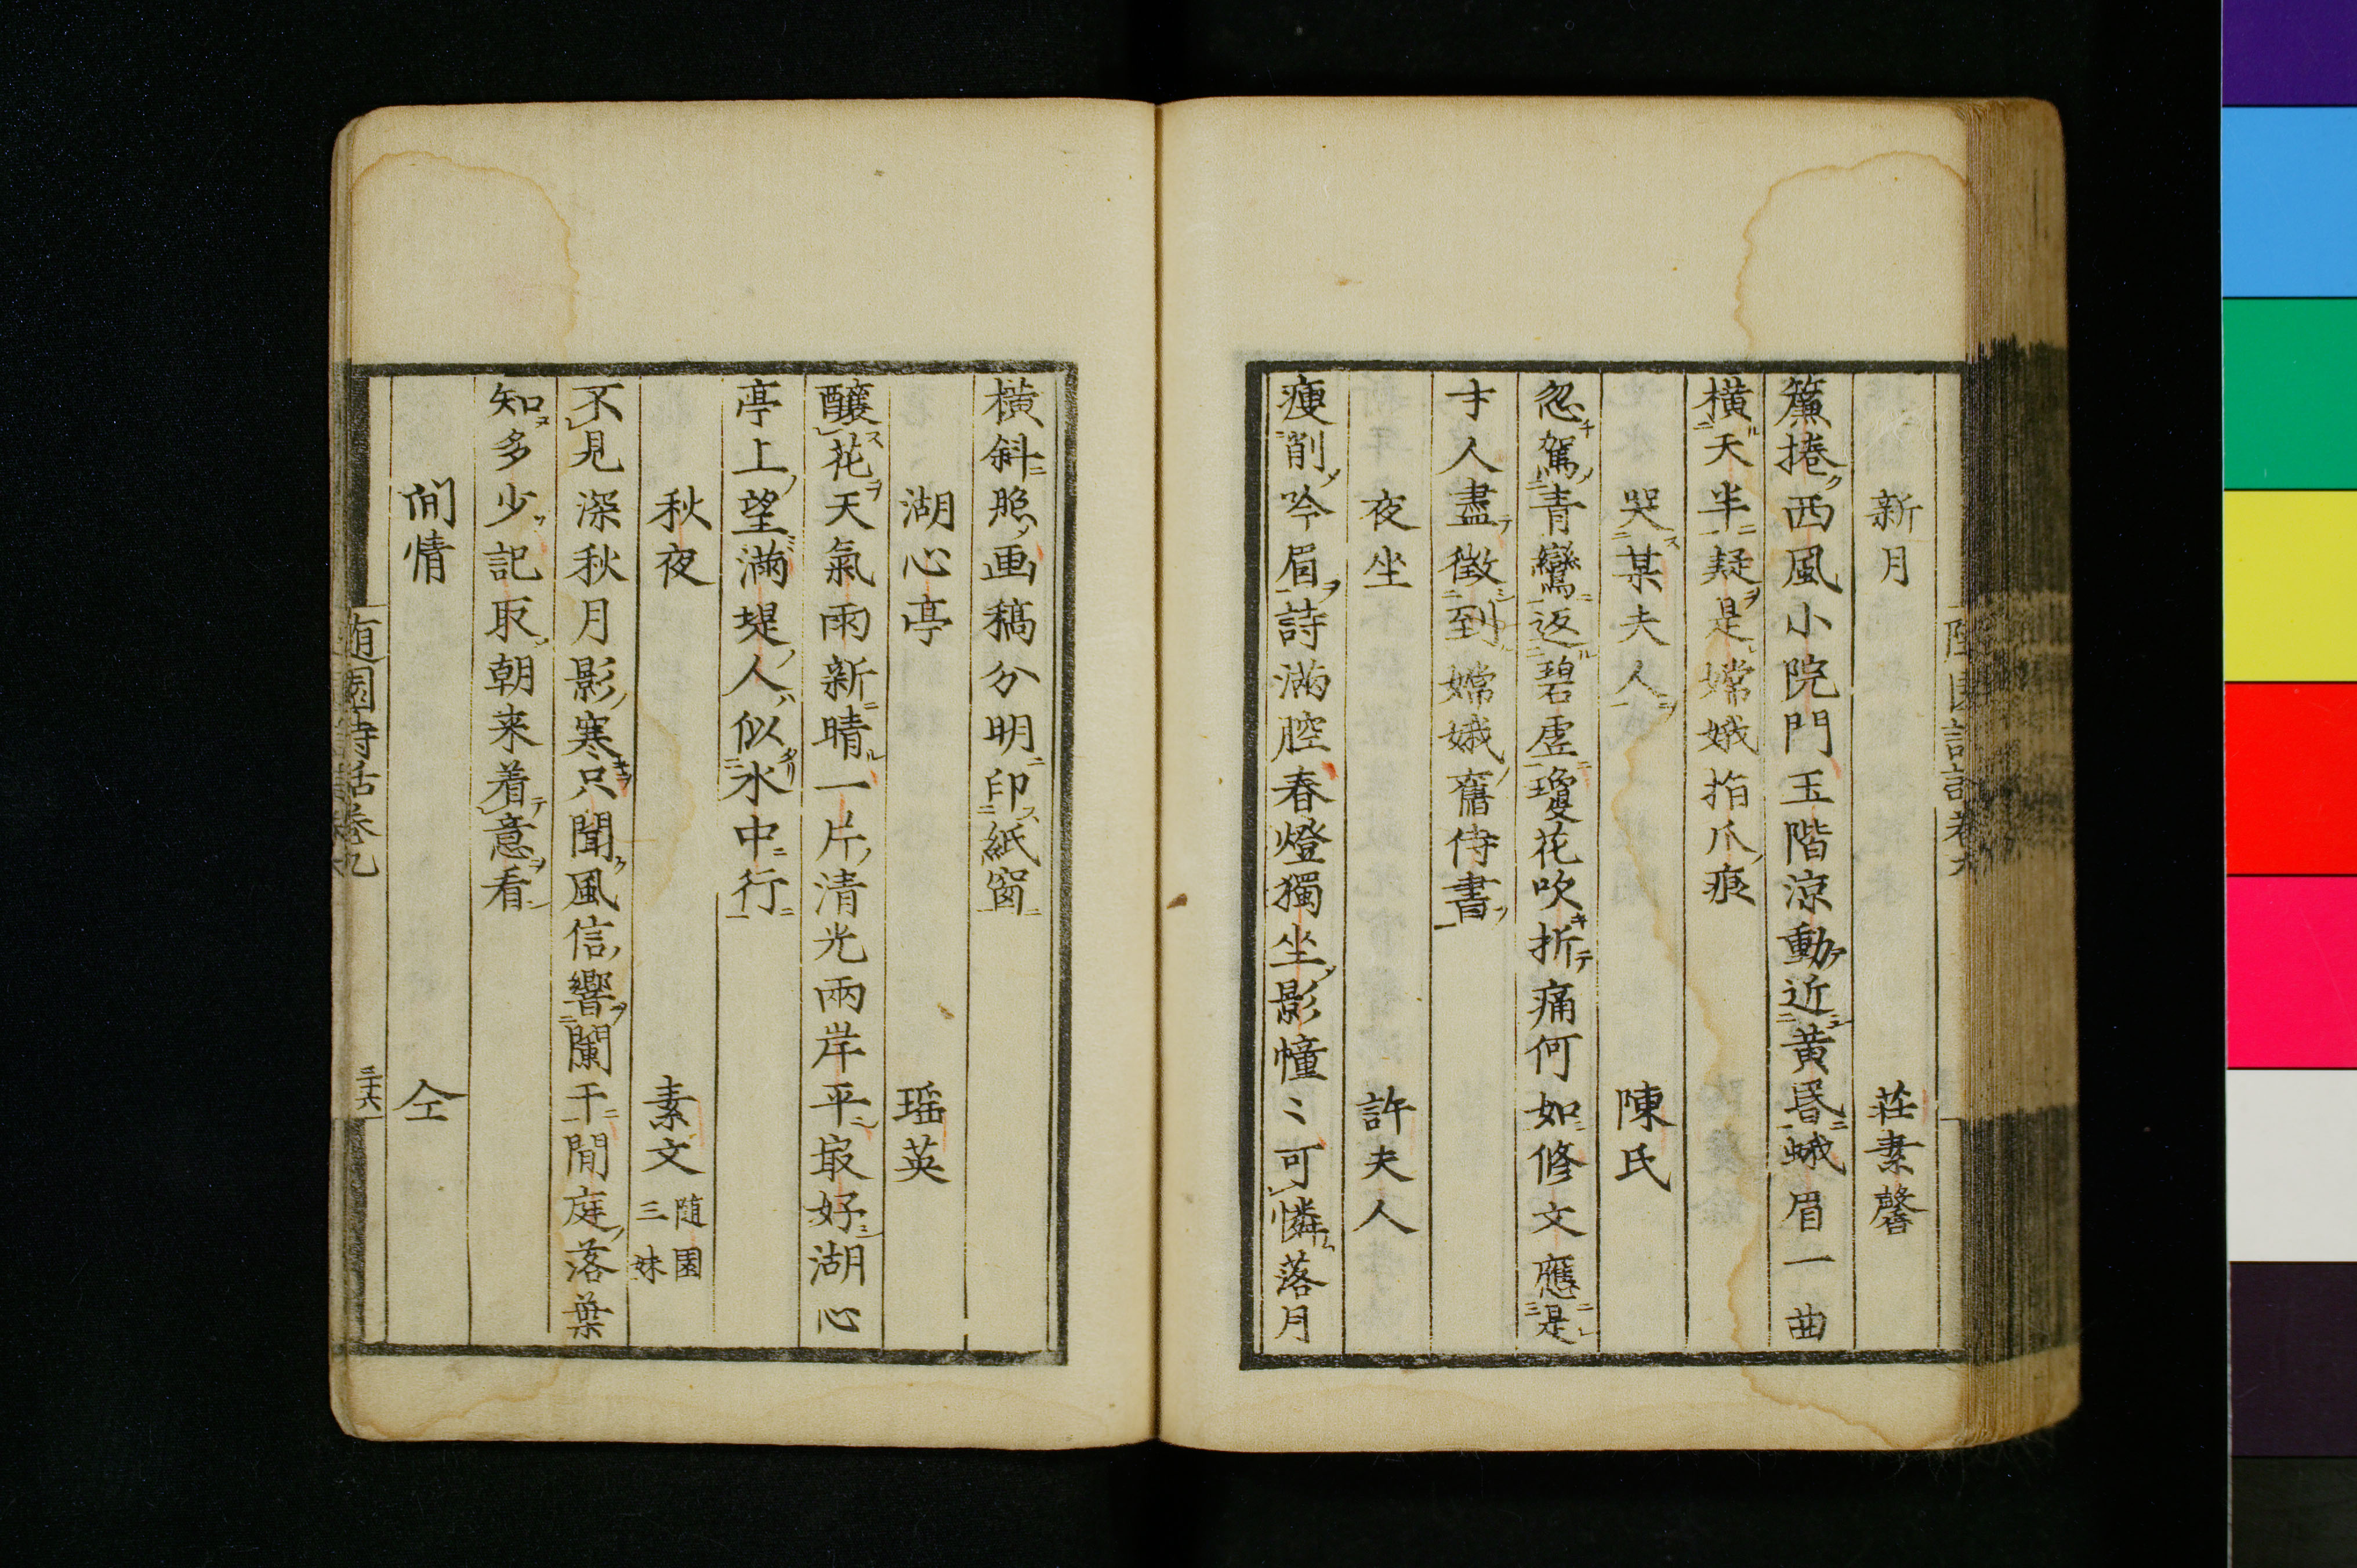 新月 莊素馨
簾捲西風小院門玉階涼動近黃昏蛾眉一曲
橫天半疑是嫦娥指爪痕
哭某夫人 陳氏
忽駕青鸞返碧虛瓊花吹折痛何如修文應是
才人盡徵到嫦娥舊侍書
夜坐 許夫人
瘦削吟眉詩滿腔春燈獨坐影幢〻可憐落月
橫斜照画稿分明印紙窗
湖心亭 瑶英
釀花天氣雨新晴一片清光兩岸平㝡好湖心
亭上望滿堤人似水中行
秋夜 素文 随園三妹
不見深秋月影寒只聞風信響闌干閒庭落葉
知多少記取朝来着意看
閒情 仝
随園詩話卷九 二十六